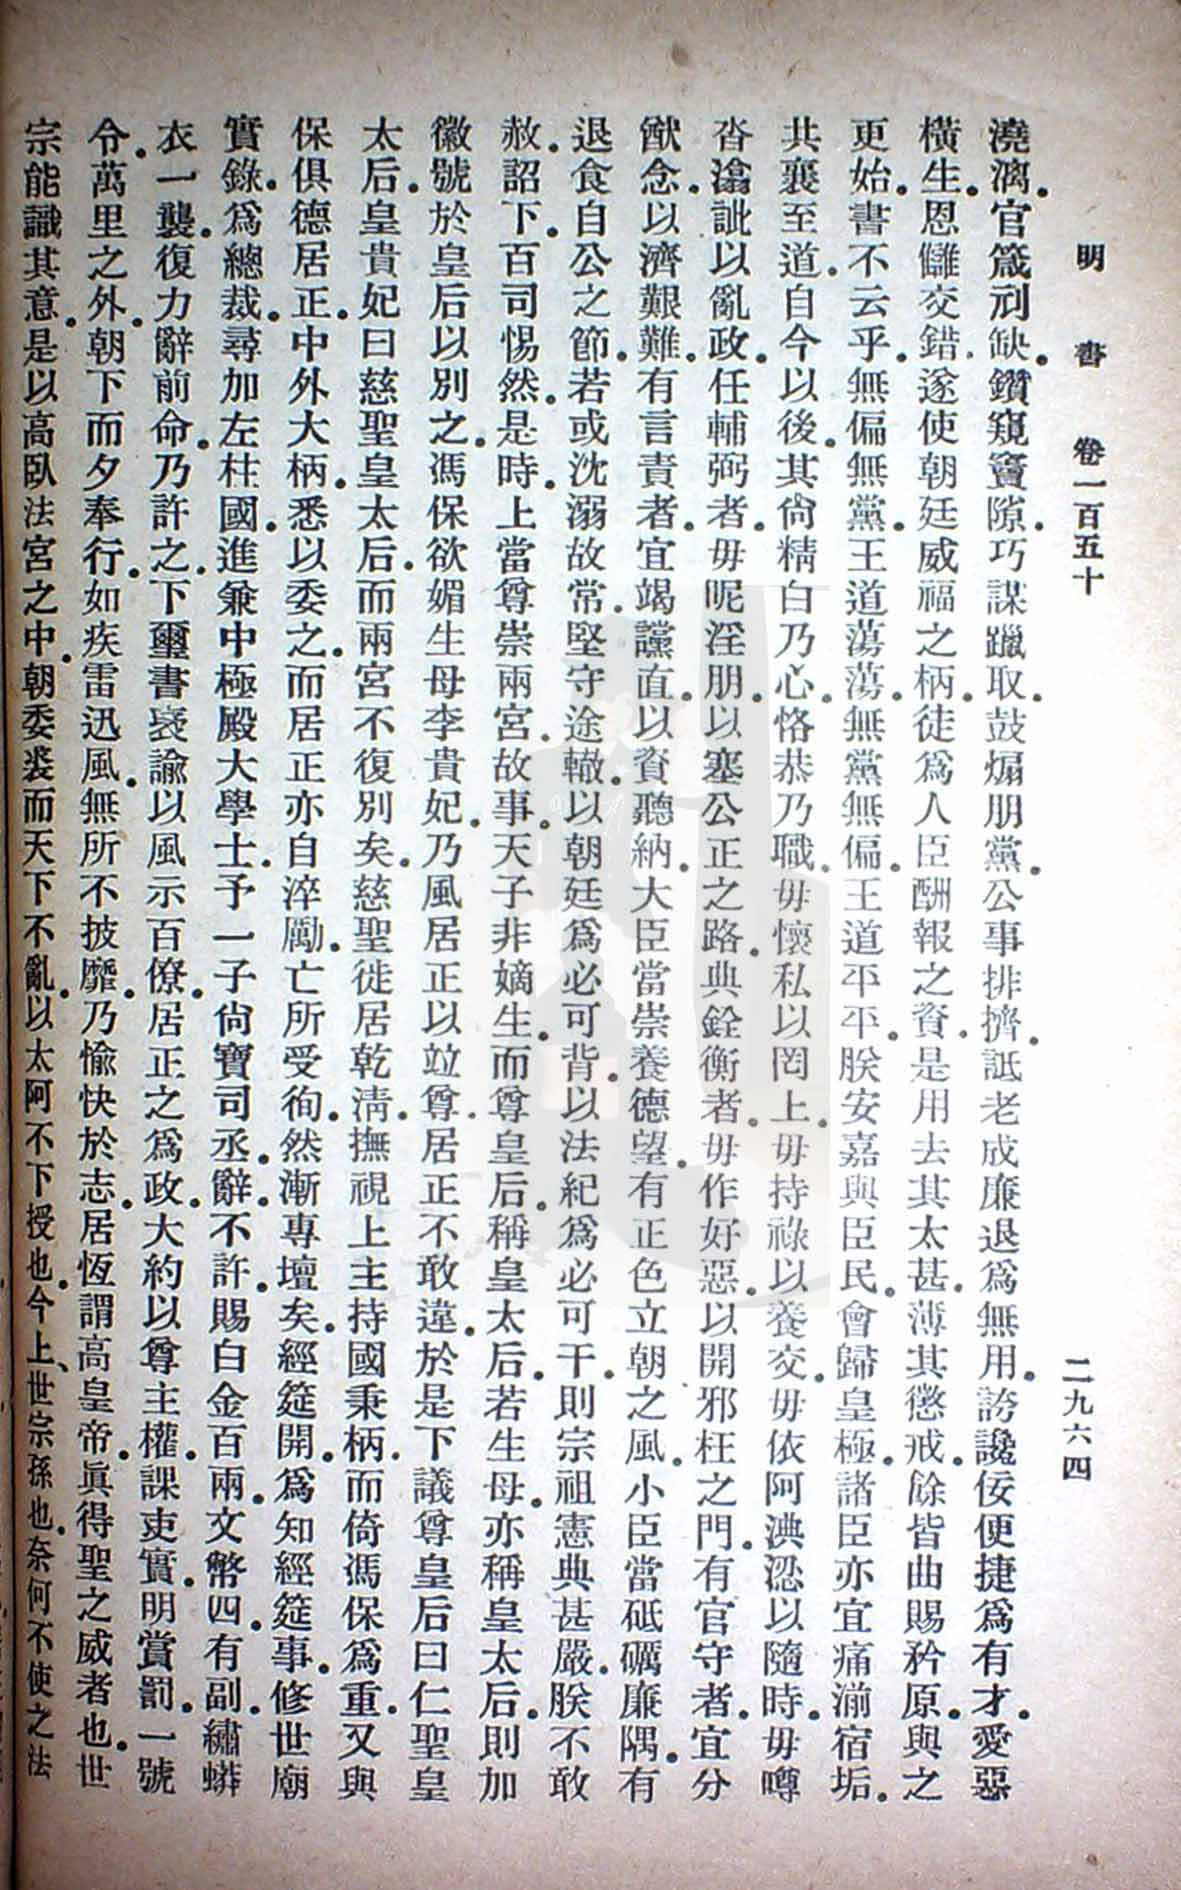 明書 卷一百五十 二九六四
澆漓。官箴刓缺。鑽窺竇隙。巧謀躐取。鼓煽朋黨。公事排擠。詆老成廉退爲無用。誇讒佞便捷爲有才。愛惡
橫生。恩讎交錯。遂使朝廷威福之柄。徒爲人臣酬報之資。是用去其太甚。薄其懲戒。餘皆曲賜矜原。與之
更始。書不云乎。無偏無黨。王道蕩蕩。無黨無偏。王道平平。朕安嘉與臣民。會歸皇極。諸臣亦宜痛湔宿垢。
共襄至道。自今以後。其尙精白乃心。恪恭乃職。毋懷私以罔上。毋持祿以養交。毋依阿淟涊以隨時。毋噂
沓渝訿以亂政。任輔弼者。毋昵淫朋。以塞公正之路。典銓衡者。毋作好惡。以開邪枉之門。有官守者。宜分
猷念。以濟艱難。有言責者。宜竭讜直。以資聽納。大臣當崇養德望。有正色立朝之風。小臣當砥礪廉隅。有
退食自公之節。若或沈溺故常。堅守途轍。以朝廷爲必可背。以法紀爲必可干。則宗祖憲典甚嚴。朕不敢
赦。詔下。百司惕然。是時。上當尊崇兩宮。故事。天子非嫡生。而尊皇后。稱皇太后。若生母。亦稱皇太后。則加
徽號於皇后以別之。馮保欲媚生母李貴妃。乃風居正以竝尊。居正不敢違。於是下議尊皇后曰仁聖皇
太后。皇貴妃曰慈聖皇太后。而兩宮不復別矣。慈聖徙居乾淸。撫視上主持國秉柄。而倚馮保爲重。又與
保俱德居正。中外大柄。悉以委之。而居正亦自淬勵。亡所受徇。然漸專壇矣。經筵開。爲知經筵事。修世廟
實錄。爲總裁。尋加左柱國。進兼中極殿大學士。予一子尙寶司丞。辭。不許。賜白金百兩。文幣四。有副。繡蟒
衣一襲。復力辭前命。乃許之。下璽書襃諭以風示百僚。居正之爲政。大約以尊主權。課吏實。明賞罰。一號
令。萬里之外。朝下而夕奉行。如疾雷迅風。無所不披靡。乃愉快於志。居恆謂高皇帝。眞得聖之威者也。世
宗能識其意。是以高臥法宮之中。朝委裘而天下不亂。以太阿不下授也。今上、世宗孫也。奈何不使之法